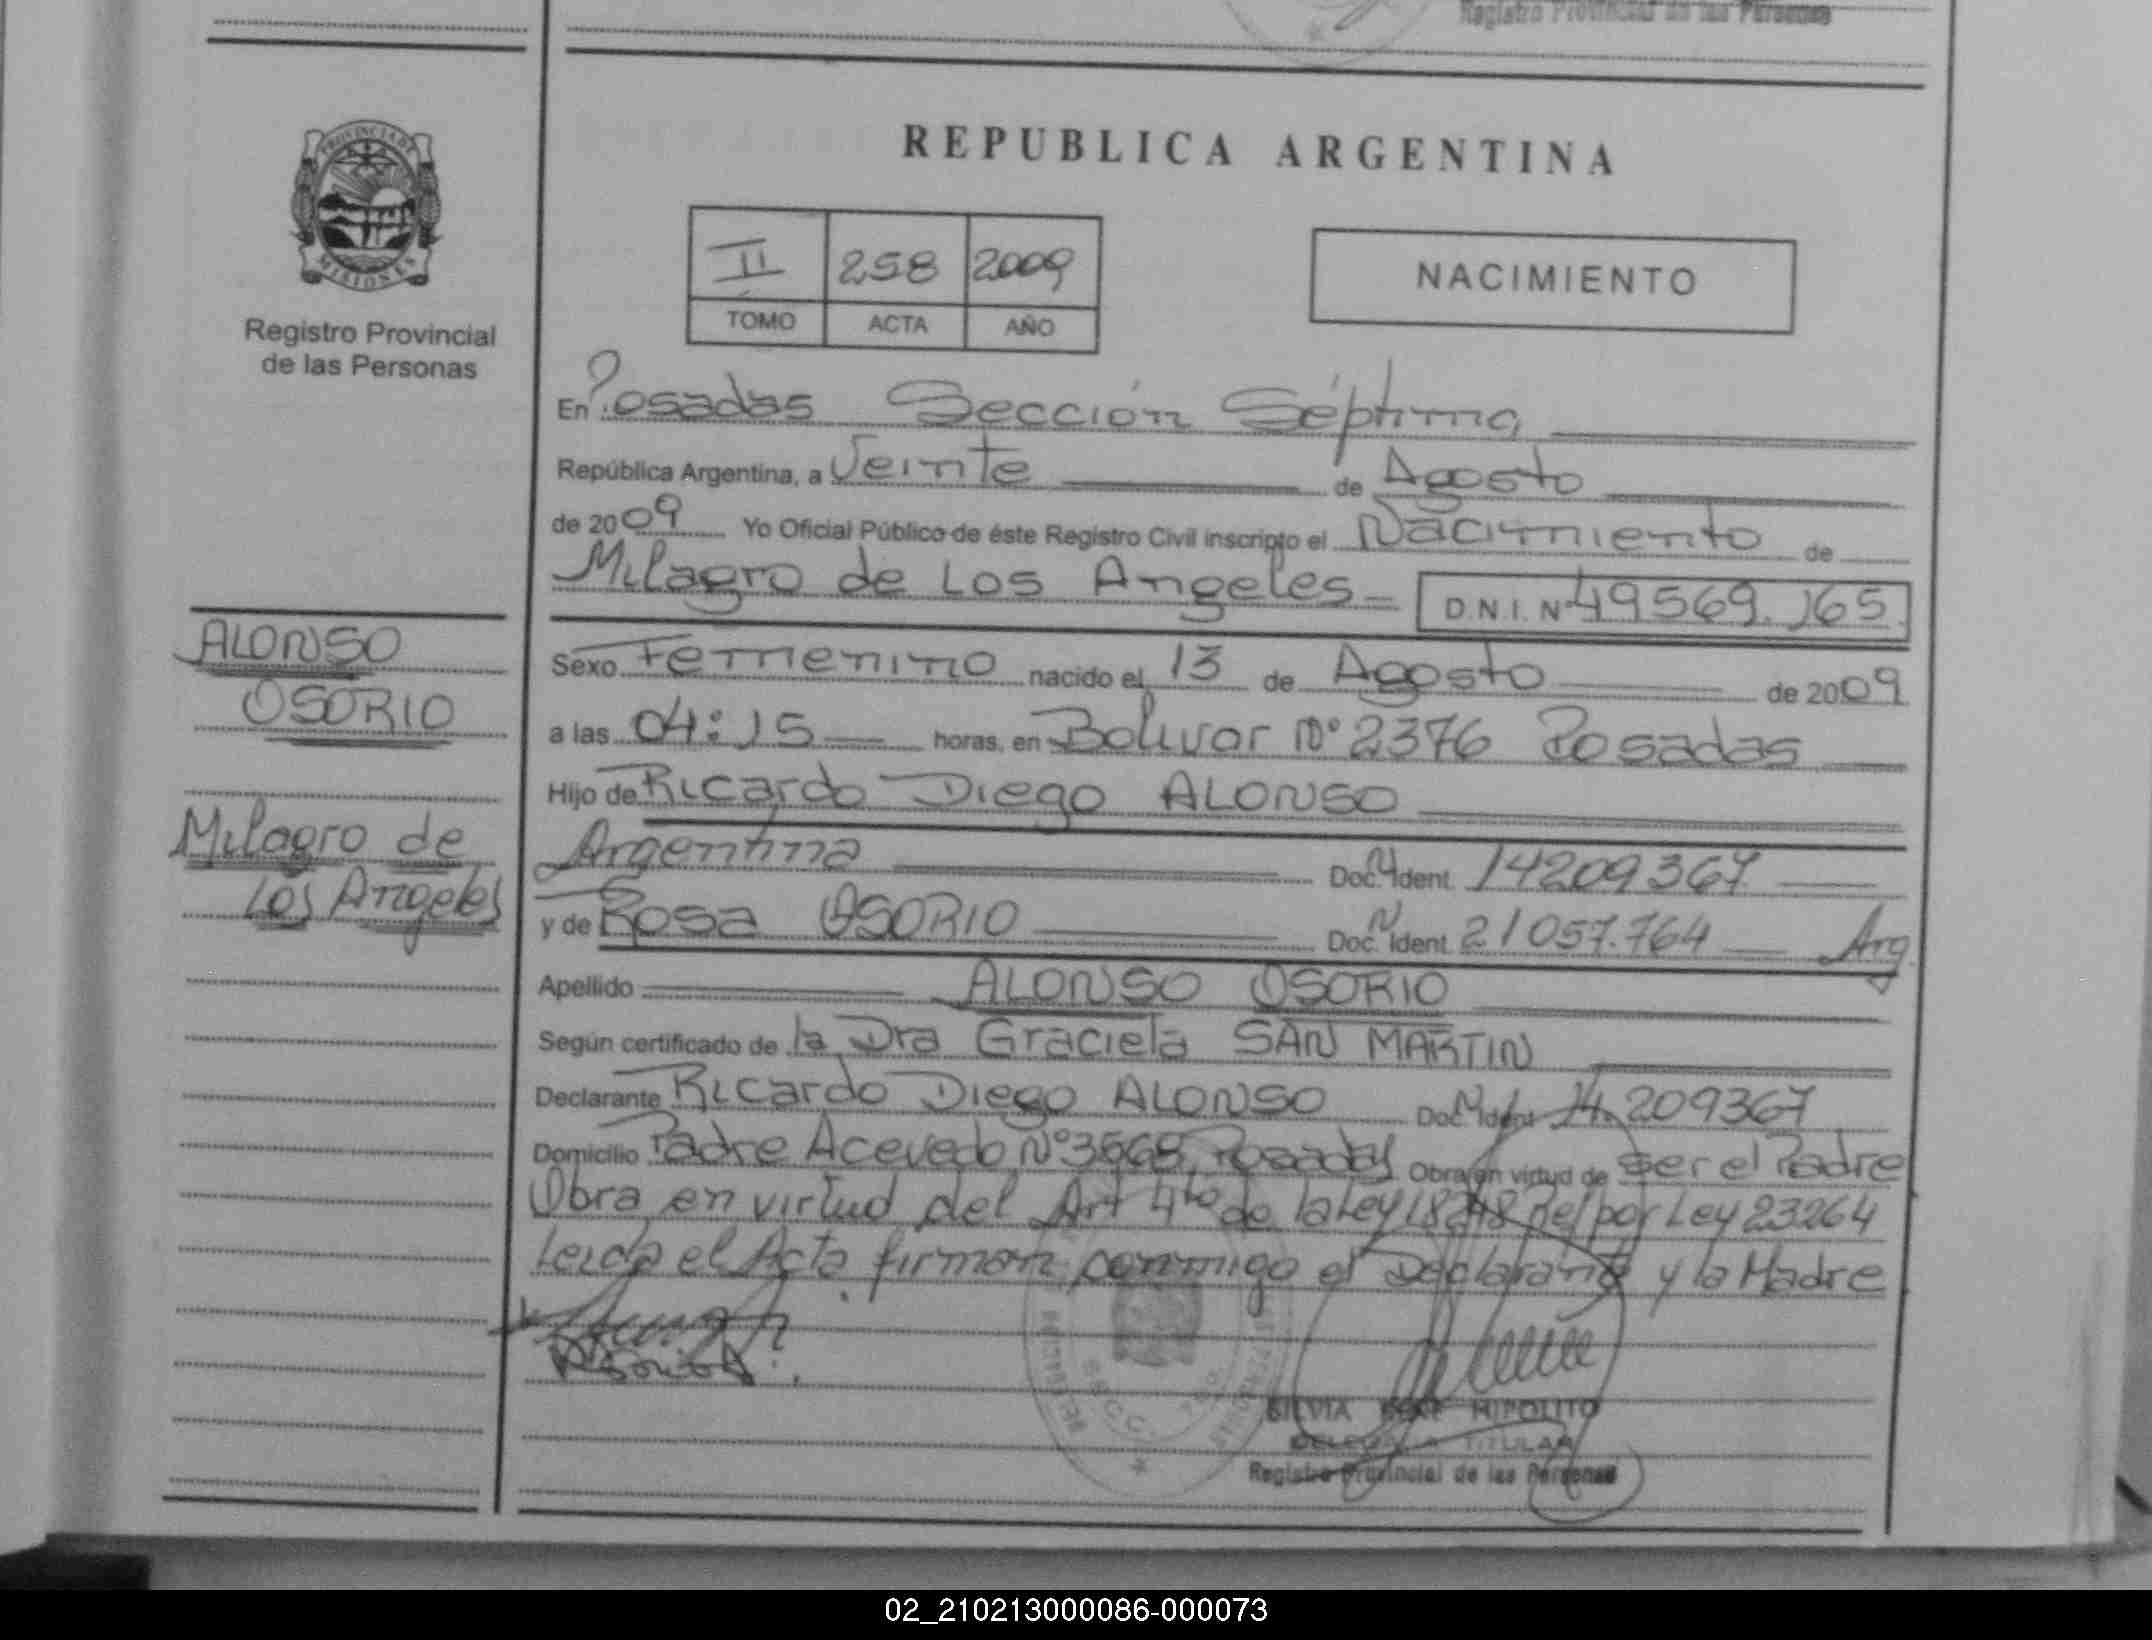 Registro Provincial de las Personas
PROVINCIA DE
MISIONES
Registro Provincial
de las Personas
ALONSO
OSORIO
Milagro de
Los Angeles
REPUBLICA ARGENTINA
II 258 2009
TOMO ACTA AÑO
NACIMIENTO
En Posadas Sección Séptima
República Argentina, a Veinte de Agosto
de 2009 Yo Oficial Público de éste Registro Civil inscripto el Nacimiento de
Milagro de Los Angeles D.N.I. Nº 49569.165
Sexo Femenino nacido el 13 de Agosto de 2009
a las 04:15 horas, en Bolivar Nº 2376 Posadas
Hijo de Ricardo Diego ALONSO
Argentina Doc. N Ident. 14209367
y de Rosa OSORIO Doc. N Ident. 21057.764 Arg
Apellido ALONSO OSORIO
Según certificado de la Dra Graciela SAN MARTIN
Declarante Ricardo Diego ALONSO Doc. N Ident 14.209367
Domicilio Padre Acevedo Nº 3668 Posadas Obra en virtud de ser el Padre
Obra en virtud del Art 4to de la Ley 18248 Ref por Ley 23264
Leida el Acta firman conmigo el Declarante y la Madre
SILVIA HIPOLITO
DELEGADA TITULAR
Registro Provincial de las Personas
02_210213000086-000073